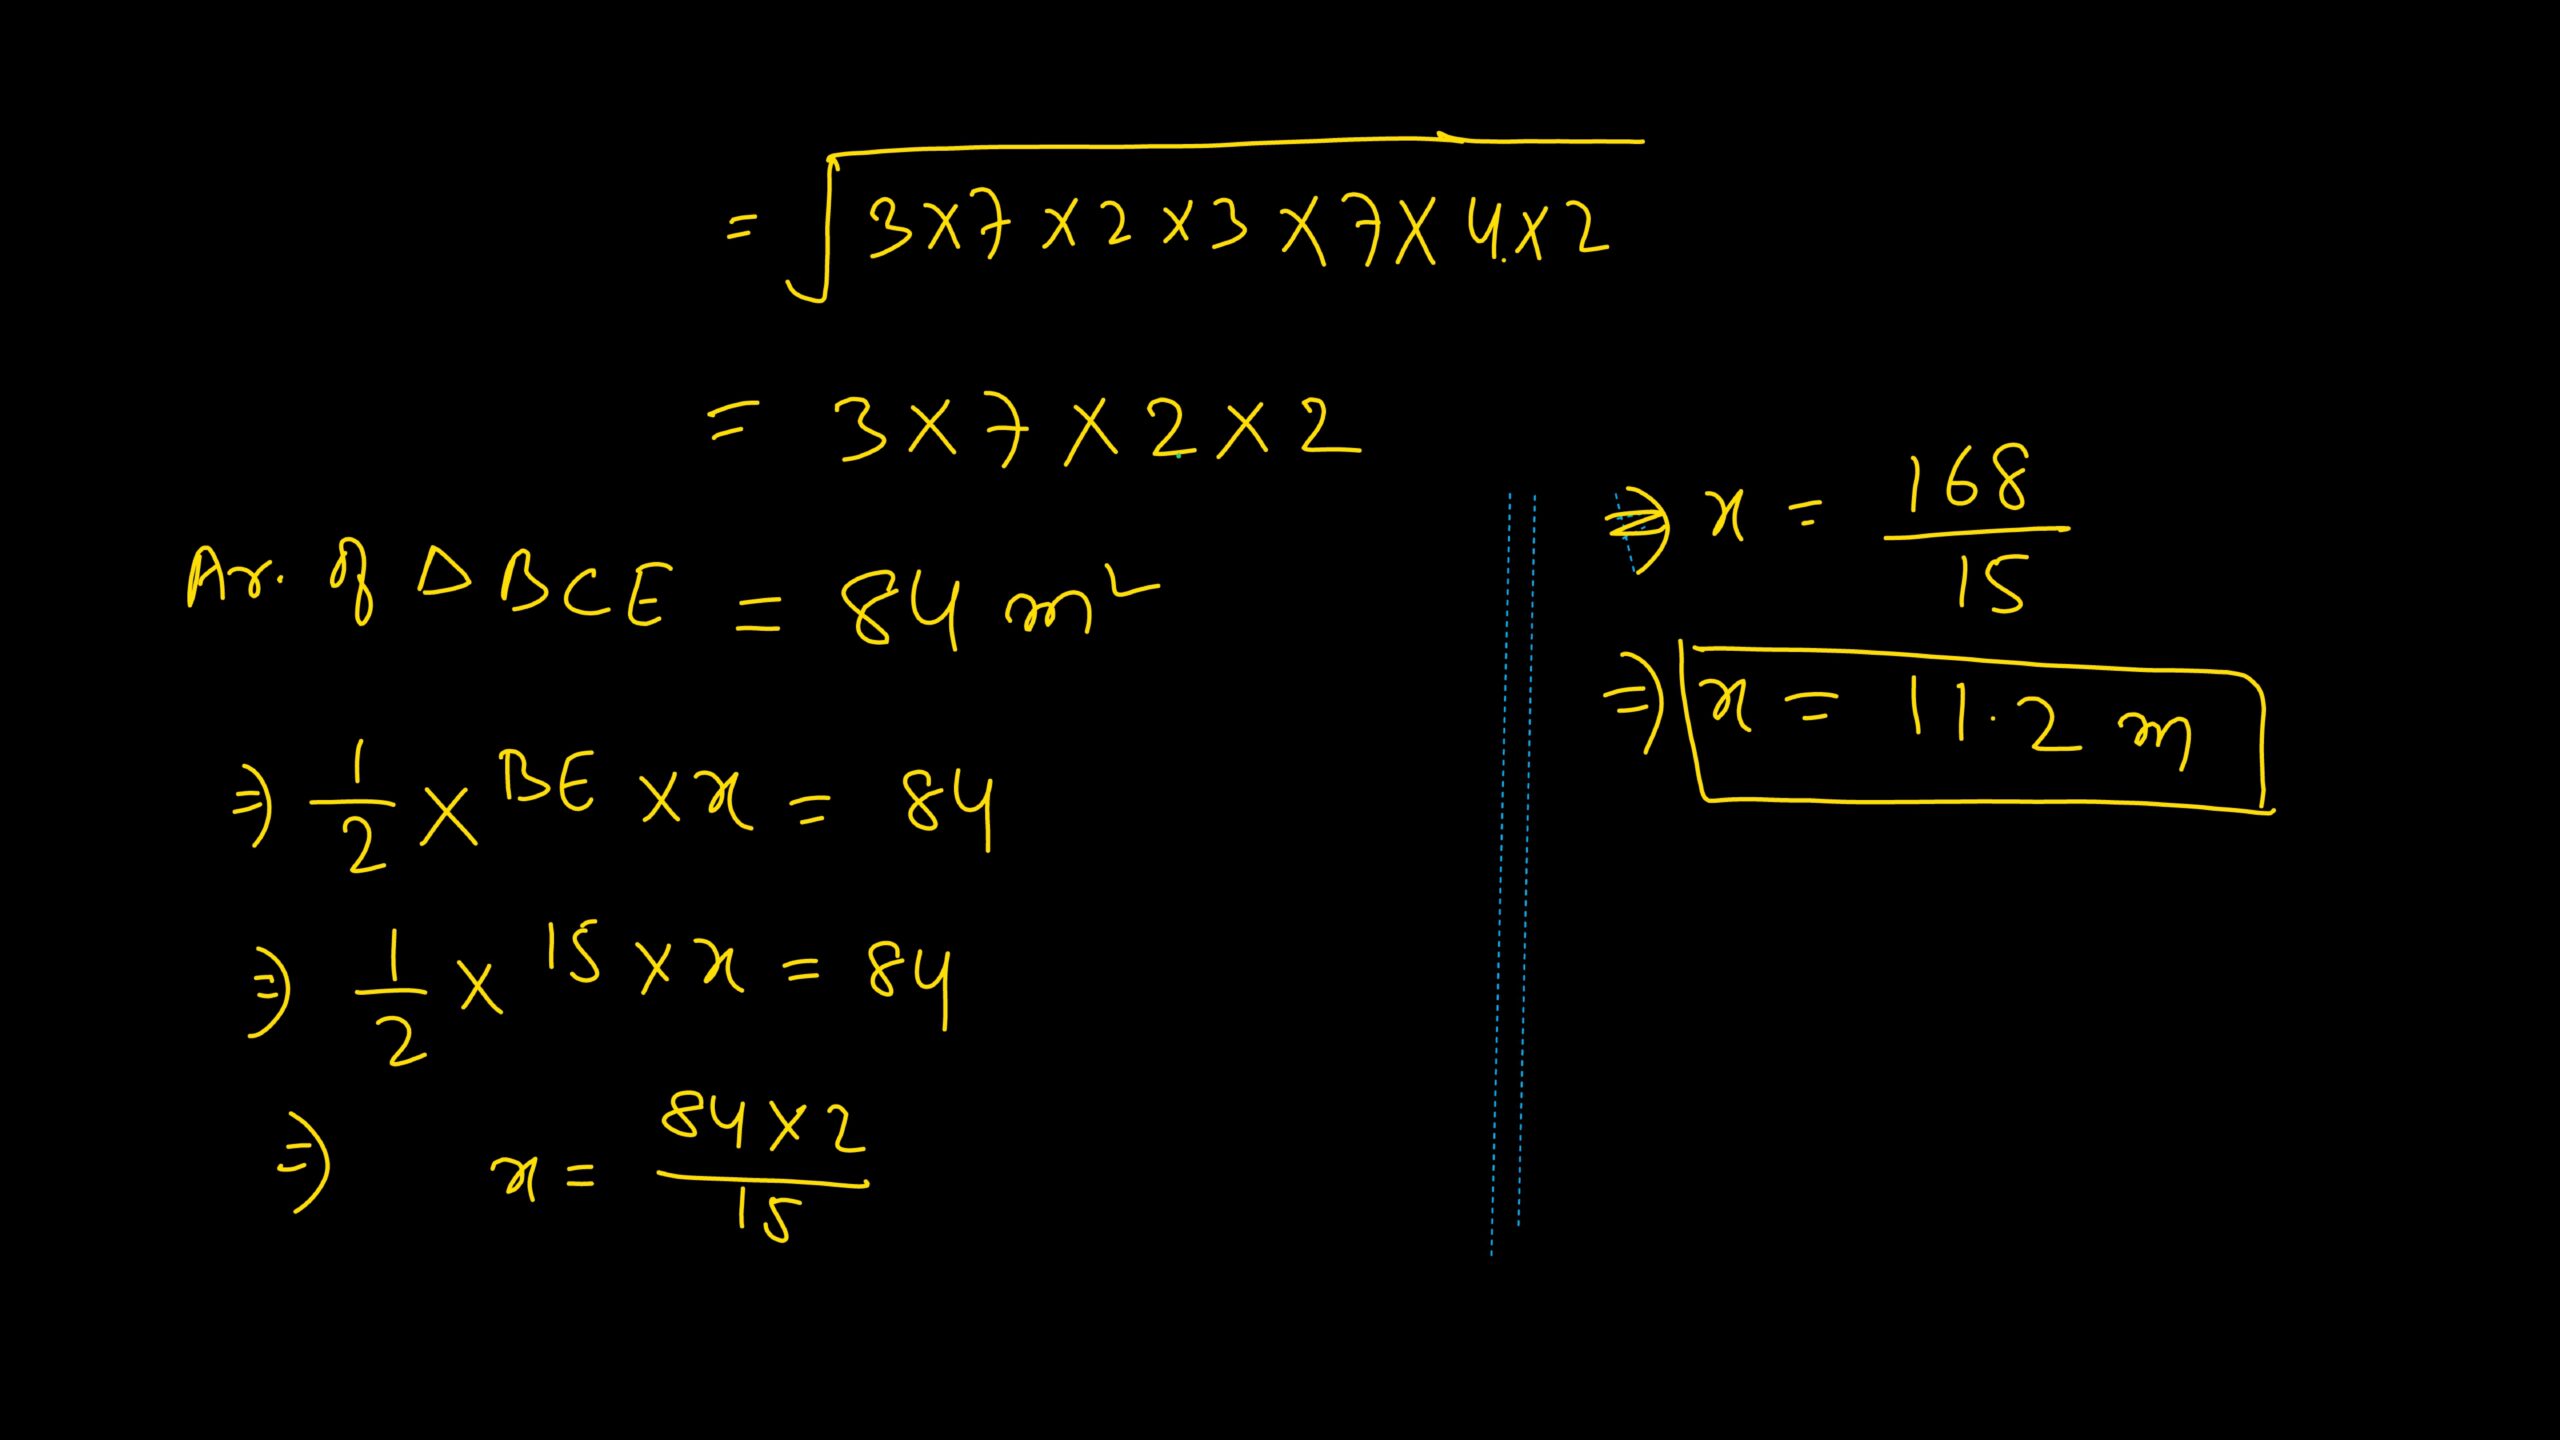 = √3×7×2×3×7×4×2
= 3×7×2×2
Ar. of Δ BCE = 84 m²
⇒ 1/2 × BE × x = 84
⇒ 1/2 × 15 × x = 84
⇒ x = 84×2/15
⇒ x = 168/15
⇒ x = 11.2 m